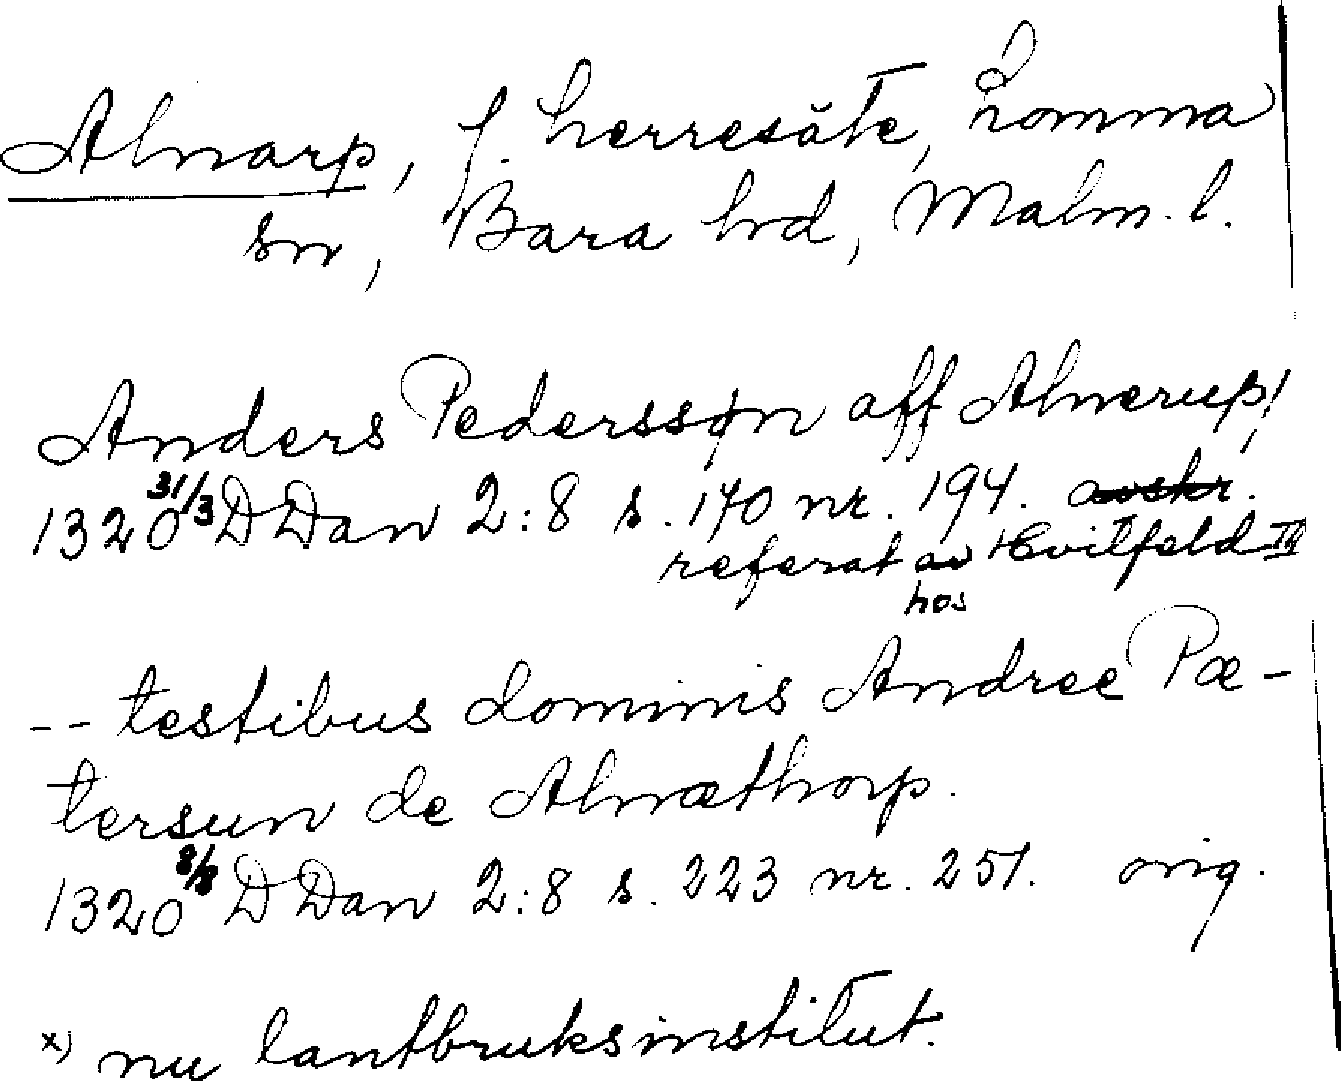 Alnarp, f. herresäte, Lomma
sn, Bara hrd, Malm. l.
Anders Pederssøn aff Alnerup!
1320 31/3 DDan 2:8 s. 170 nr. 194. avskr.
referat av Hvitfeld III
hos
-- testibus dominis Andree Pæ-
tersun de Alnæthorp.
1320 8/8 DDan 2:8 s. 223 nr. 251. orig.
x) nu lantbruksinstitut.